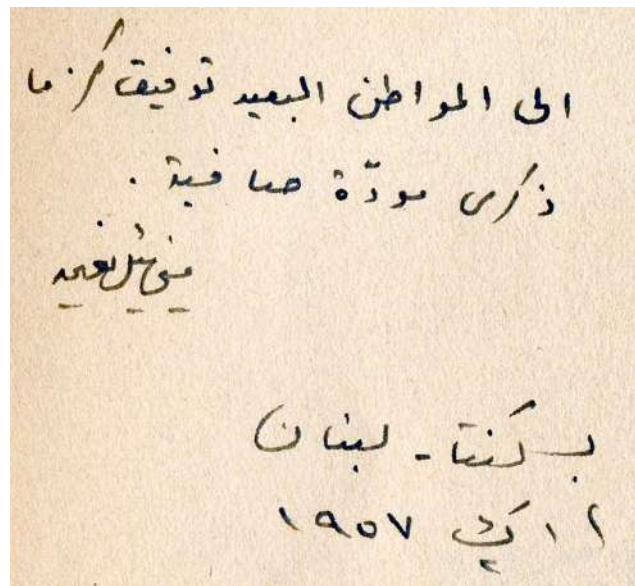 الى المواطن البعيد توفيق كرما
ذكرى مودّة صافية.
ميخائيل نعيمه
بسكنتا - لبنان
١٩٥٧